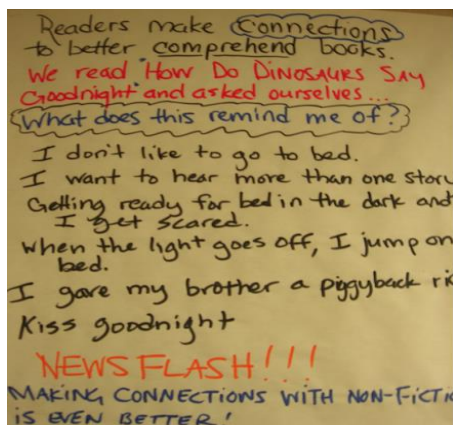 Readers make Connections
to better comprehend books.
We read How Do Dinosaurs Say
Goodnight and asked ourselves...
What does this remind me of?
I don't like to go to bed.
I want to hear more than one
Getting ready for bed in the dark and
I get scared.
When the light goes off, I jump on
bed.
I gave my brother a piggyback
Kiss goodnight
NEWSFLASH!!!
MAKING CONNECTIONS WITH
IS EVEN BETTER!